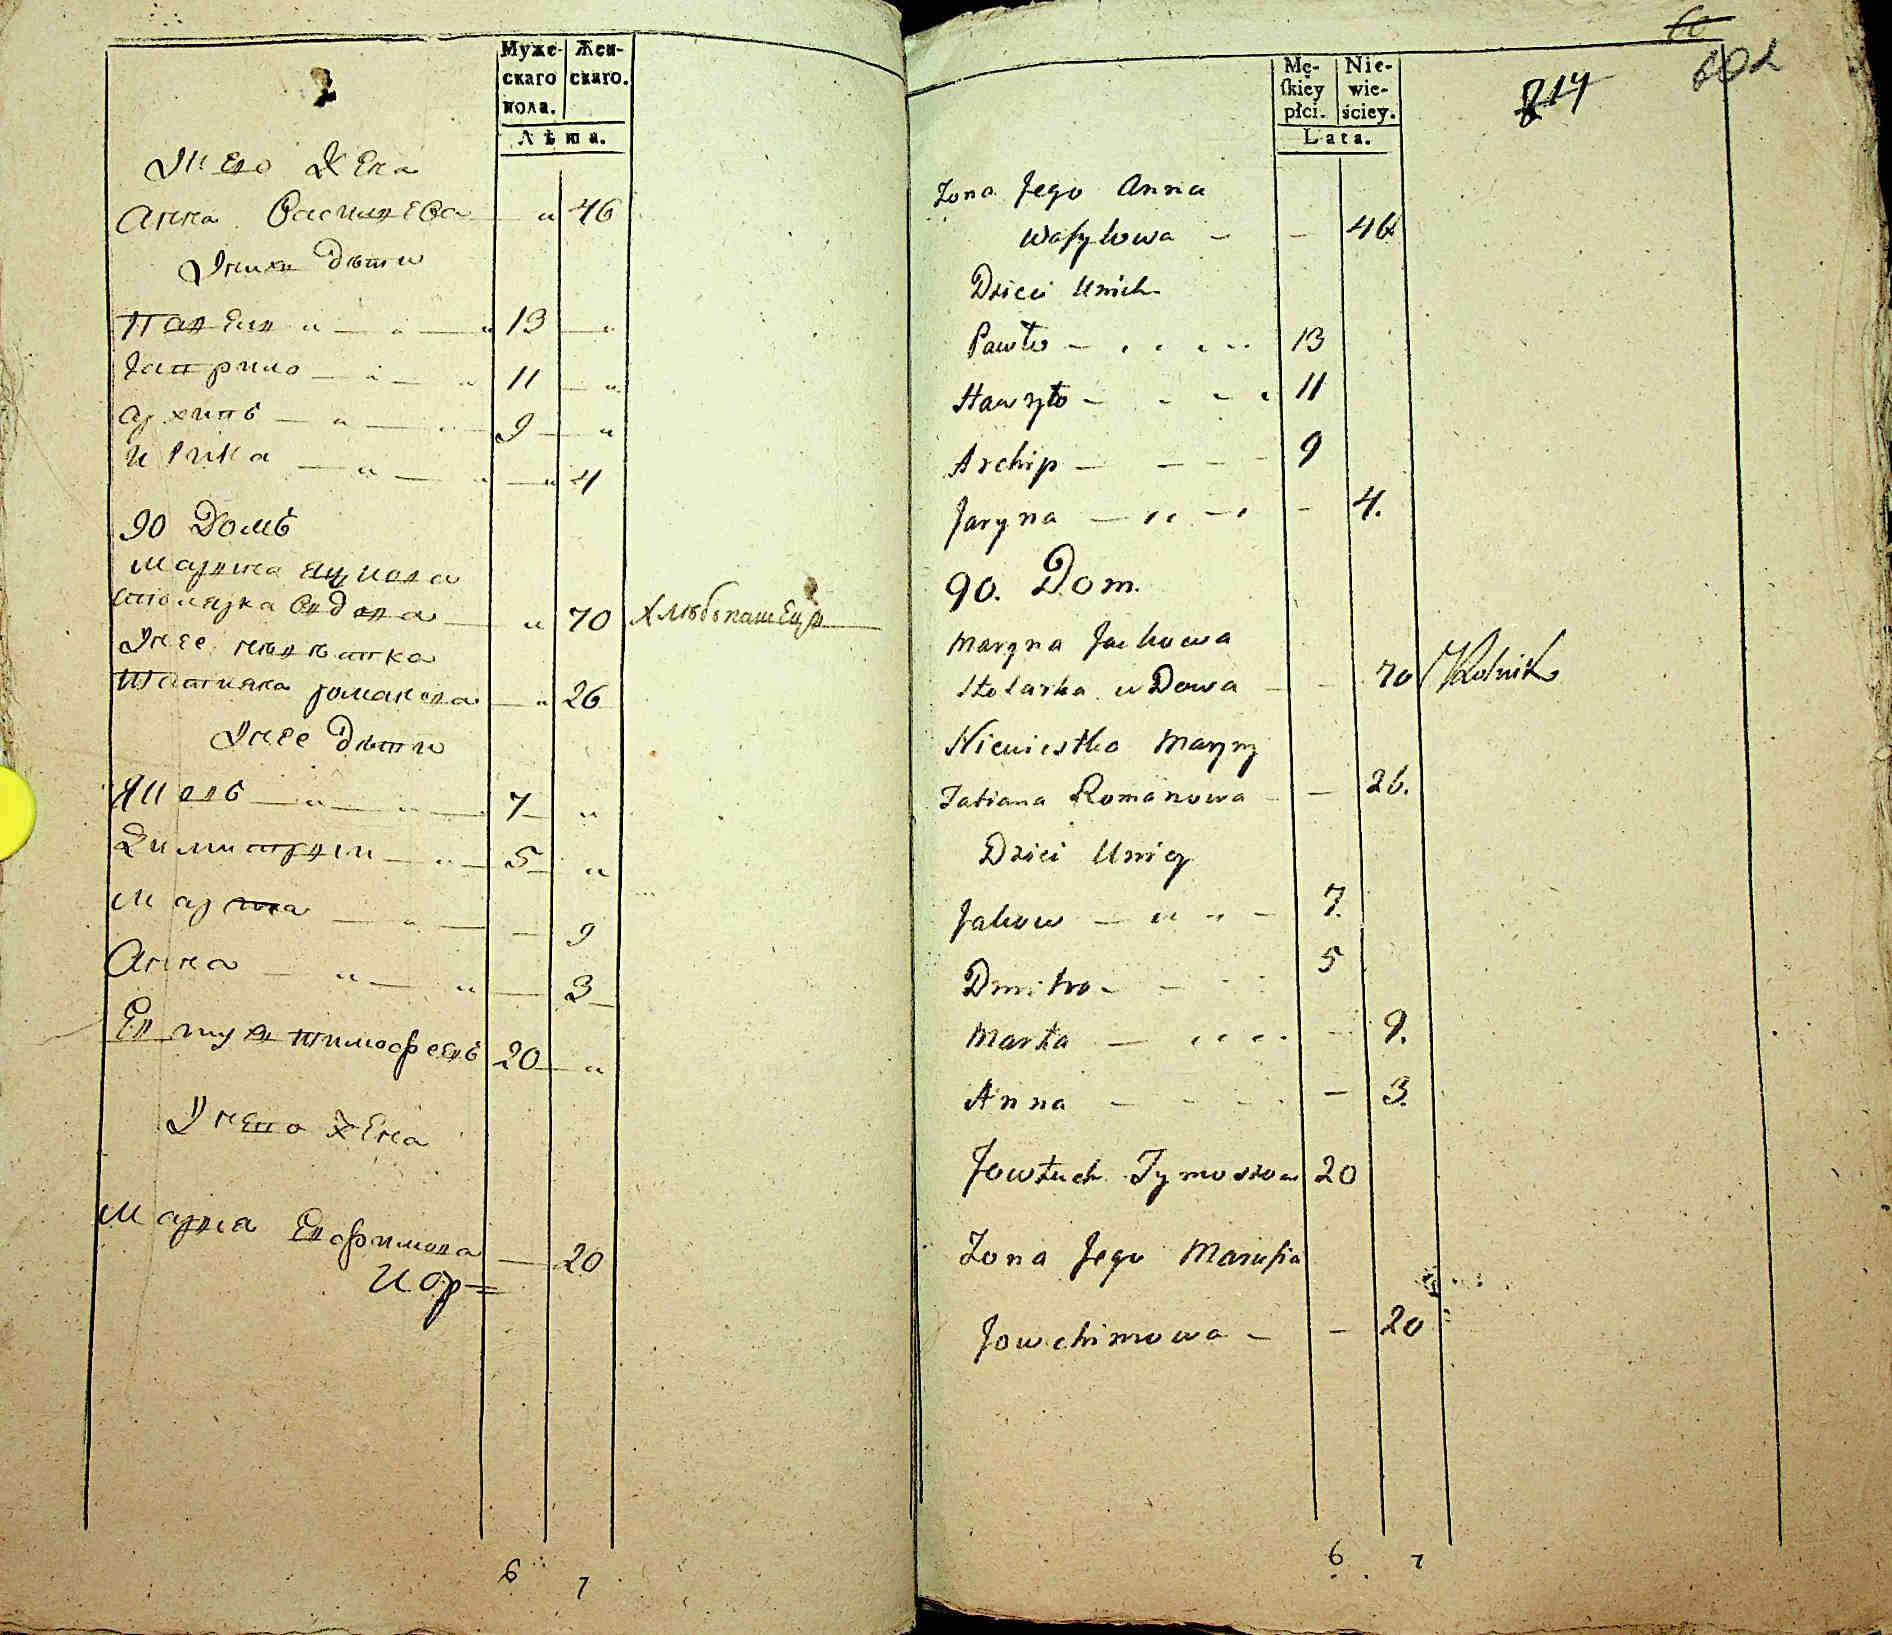 Муже-
скаго
пола.
Жен-
скаго.
Лѣта.
Унего Жена
Анна Василева — " 46
Унихъ Дѣти
Павелъ " — " — " 13 — "
Гаврило — " — " 11 — "
Архипъ — " — 9 — "
— " — " — " 4
90 Домъ
Марина Яцкова
Столярка вдова — " 70 Хлѣбопашецъ
Унее невѣстка
Татияна Романова — " 26
Унее Дѣти
Яковъ — " — " — 7 — "
Димитрий — " — 5 — "
Марта — " — — 9
Анна — " — " — 3
Евтух Тимофеевъ 20 — "
Унего Жена
Марья Евфимова — 20
6 7
60
602
Mę-
skiey
płci.
Nie-
wie-
ściey.
Lata.
814
Żona Jego Anna
Wasylowa - - 46
Dzieci Unich
Pawło - 13
Hawryło - 11
Archip - 9
Jaryna - - 4.
90. Dom.
Maryna Jackowa
Stolarka wDowa - - 70 Rolnik
Niewiestka Maryny
Tatiana Romanowa - - 26.
Dzieci Uniey
Jakow - 7.
Dmitro - 5
Marta - - 9.
Anna - - 3.
Jowtuch Tymoszow 20
Żona Jego Marusia
Jowchimowa - - 20
6 7